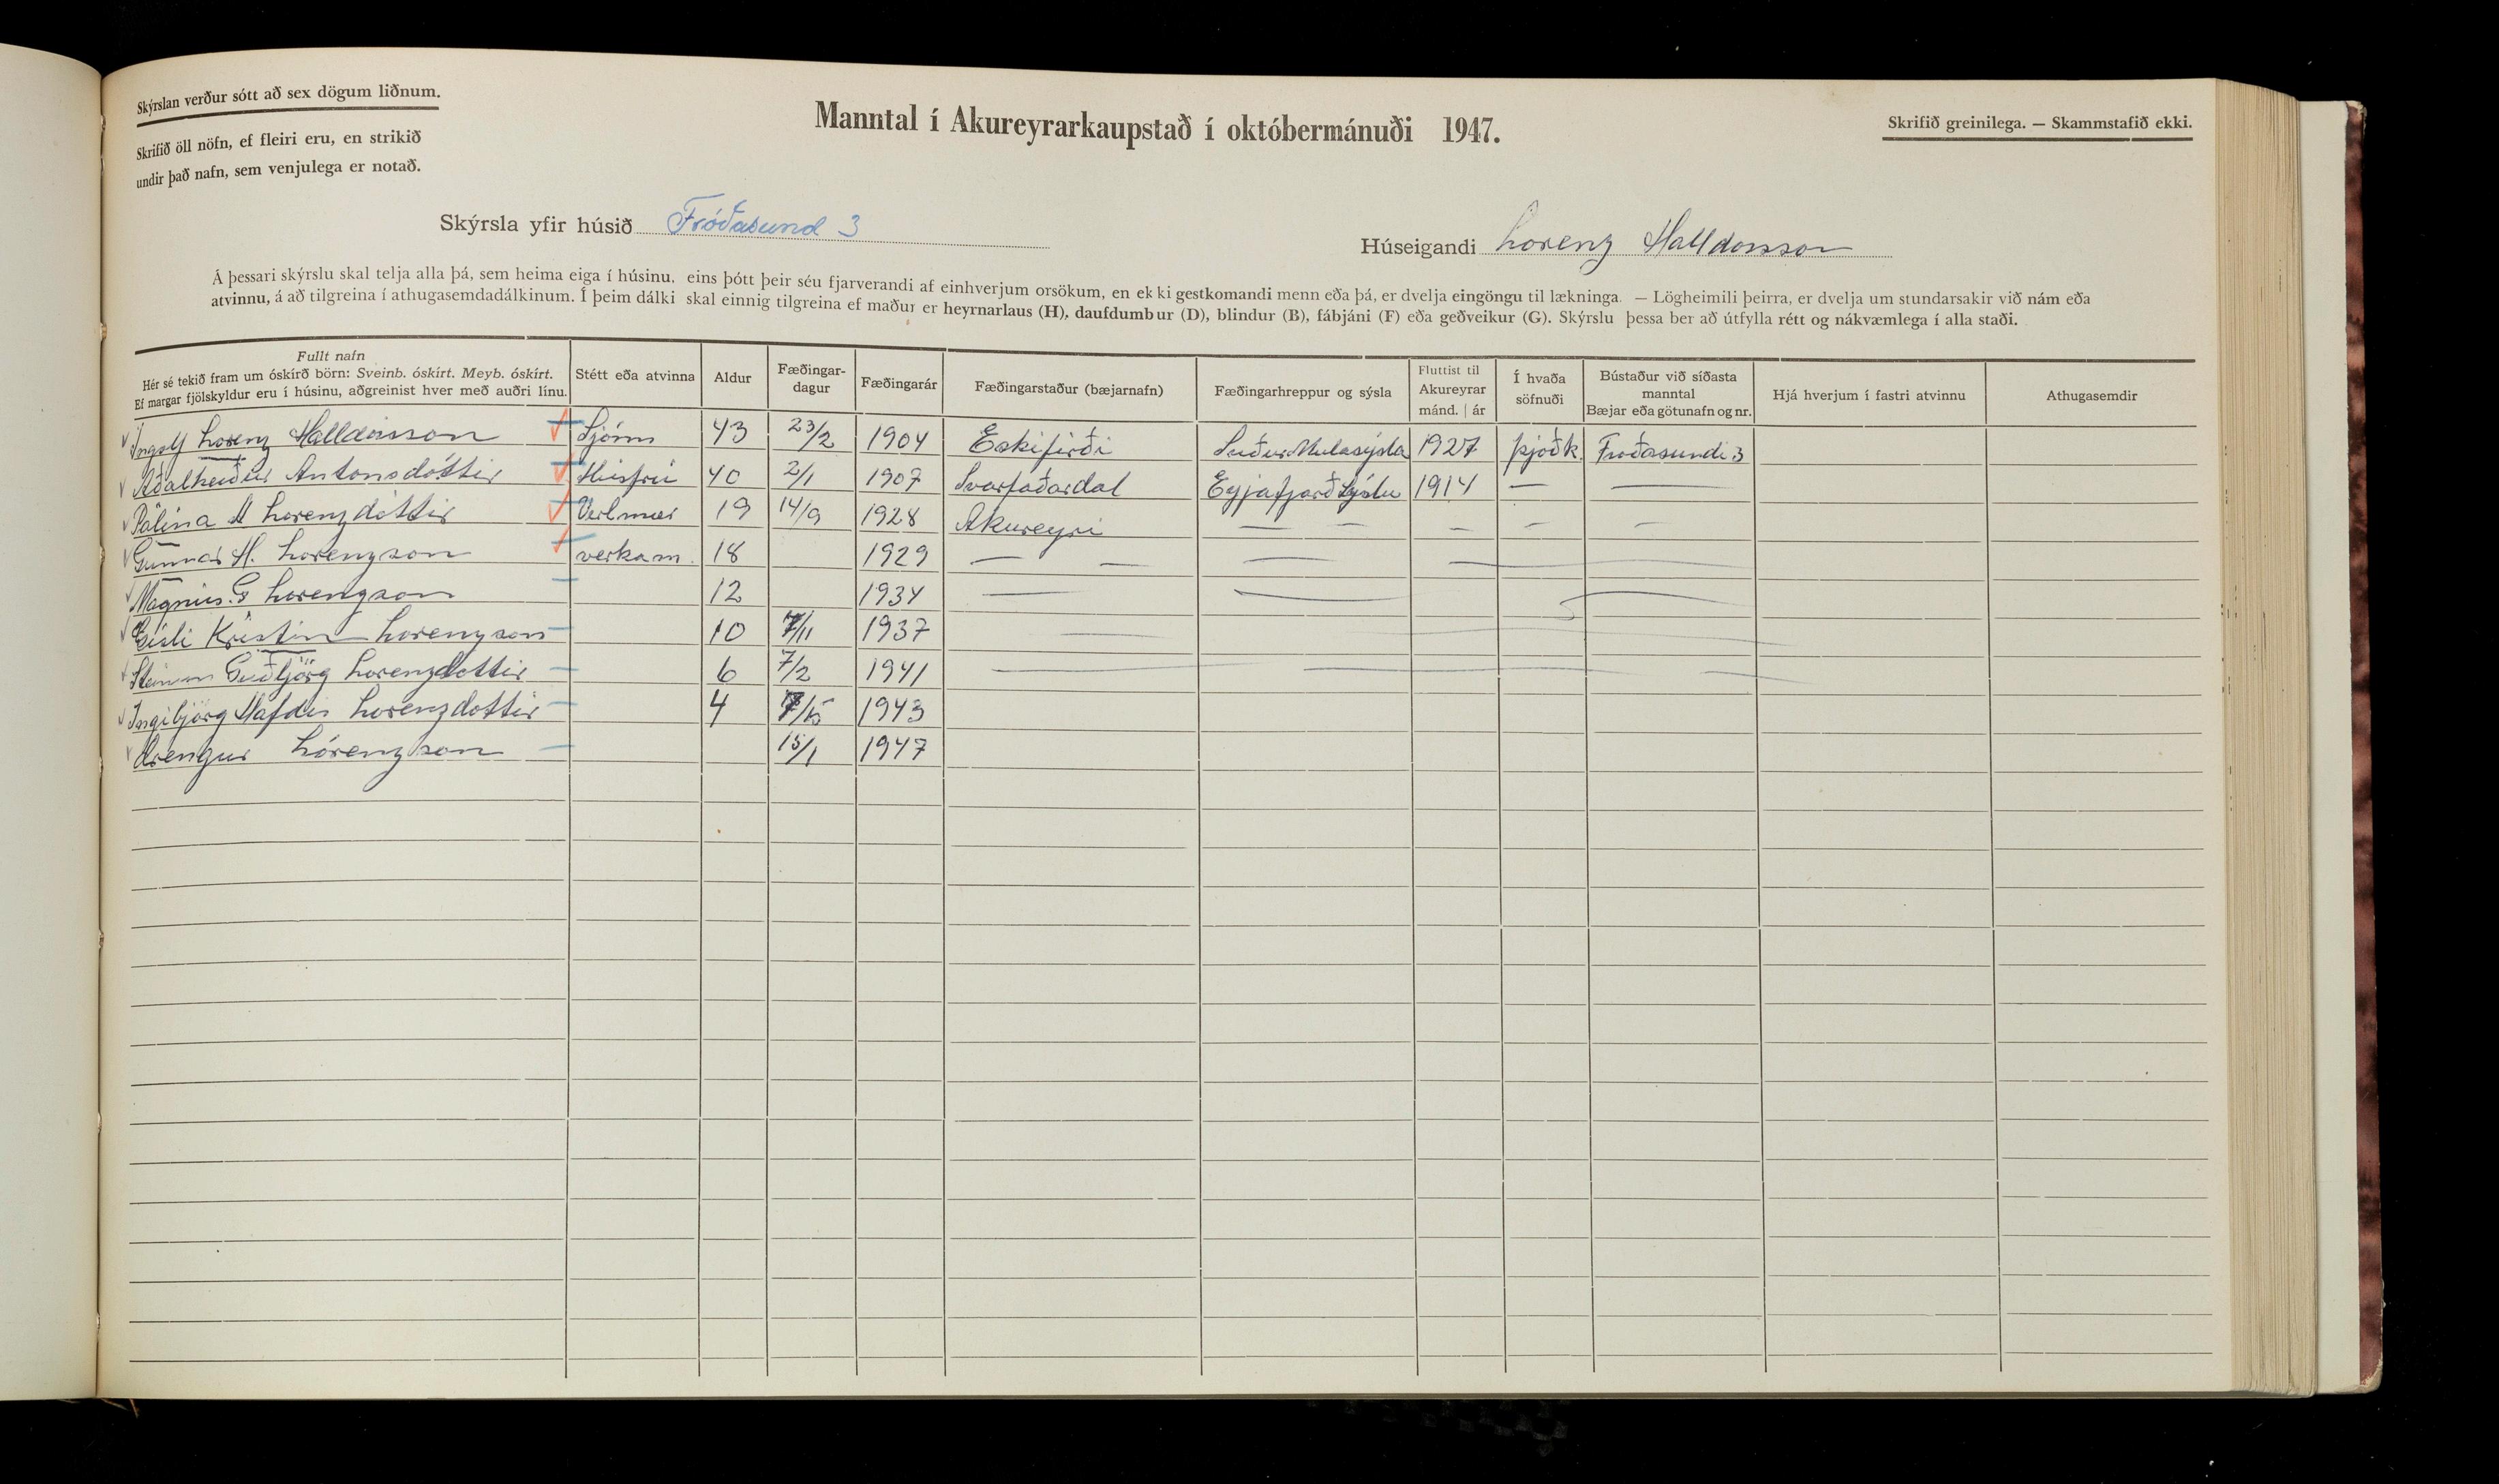 Skýrslan verður sótt að sex dögum liðnum.
Skrifið öll nöfn, ef fleiri eru, en strikið
undir það nafn, sem venjulega er notað.
Manntal í Akureyrarkaupstað í októbermánuði 1947.
Skrifið greinilega. — Skammstafið ekki.
Skýrsla yfir húsið Fróðasund 3
Húseigandi Lorenz Halldorsson
Á þessari skýrslu skal telja alla þá, sem heima eiga í húsinu, eins þótt þeir séu fjarverandi af einhverjum orsökum, en ekki gestkomandi menn eða þá, er dvelja eingöngu til lækninga. — Lögheimili þeirra, er dvelja um stundarsakir við nám eða
atvinnu, á að tilgreina í athugasemdadálkinum. Í þeim dálki skal einnig tilgreina ef maður er heyrnarlaus (H), daufdumbur (D), blindur (B), fábjáni (F) eða geðveikur (G). Skýrslu þessa ber að útfylla rétt og nákvæmlega í alla staði.
Fullt nafn
Hér sé tekið fram um óskírð börn: Sveinb. óskírt. Meyb. óskírt.
Ef margar fjölskyldur eru í húsinu, aðgreinist hver með auðri línu.
Stétt eða atvinna
Aldur
Fæðingar-
dagur
Fæðingarár
Fæðingarstaður (bæjarnafn)
Fæðingarhreppur og sýsla
Fluttist til
Akureyrar
mánd. | ár
Í hvaða
söfnuði
Bústaður við síðasta
manntal
Bæjar eða götunafn og nr.
Hjá hverjum í fastri atvinnu
Athugasemdir
Ingolf Lorenz Halldórsson Sjóm 43 23/2 1904 Eskifirði Suður Mulasýsla 1927 þjóðk. Froðasundi 3
Aðalheiður Antonsdóttir Húsfrú 40 2/1 1907 Svarfaðardal Eyjafjarð Sýslu 1914 — —
Pálína A Lorenzdóttir 19 14/9 1928 Akureyri — — — — —
Gunnar H. Lorenzson verkam. 18 1929 — — — —
Magnús. G Lorenzson 12 1934 — —
Gísli Kristin Lorenzson 10 7/11 1937 —
Steinunn Guðbjörg Lorenzdottir 6 7/2 1941 — — —
Ingibjörg Hafdís Lorenzdottir 4 1943
drengur Lórenzson 15/1 1947